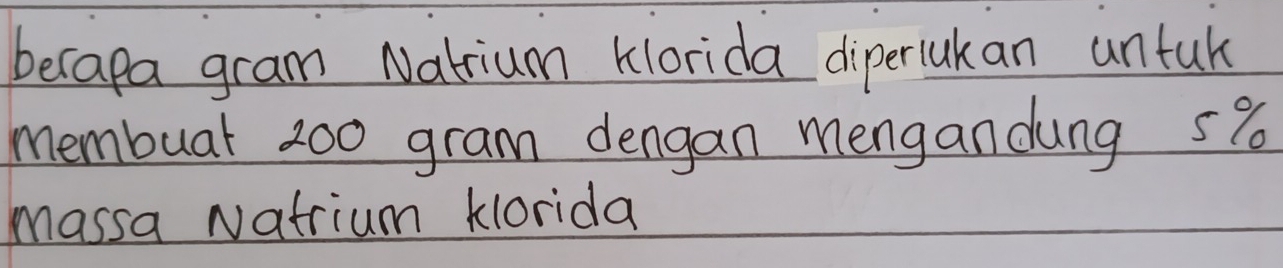 berapa gram Natrium klorida diperlukan untuk
membuat 200 gram dengan mengandung 5%
massa Natrium klorida